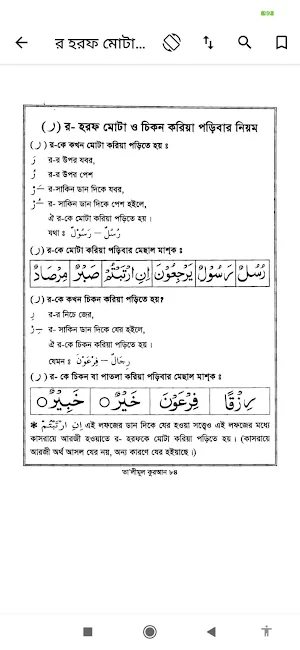 র হরফ মোটা...
(ر) র- হরফ মোটা ও চিকন করিয়া পড়িবার নিয়ম
(ر) র-কে কখন মোটা করিয়া পড়িতে হয় ঃ
رَ র-র উপর যবর,
رُ র-র উপর পেশ
র-সাকিন ডান দিকে যবর,
র- সাকিন ডান দিকে পেশ হইলে,
ঐ র-কে মোটা করিয়া পড়িতে হয় ।
যথা ঃ رَسُوْلٌ – رُسُلٌ
(ر) র-কে মোটা করিয়া পড়িবার মেছাল মাশ্ক ঃ
رُسُلٌ رَسُوْلٌ يَرْجِعُوْنَ اِنِ ارْتَبْتُمْ صَبْرٌ مِرْصَادٌ
(ر) র-কে কখন চিকন করিয়া পড়িতে হয়?
رِ র-র নিচে জের,
র- সাকিন ডান দিকে যের হইলে,
ঐ র-কে চিকন করিয়া পড়িতে হয় ।
যেমন ঃ فِرْعَوْنَ – رِجَالٌ
(ر) র- কে চিকন যা পাতলা করিয়া পড়িবার মেছাল মাশ্ক ঃ
رِزْقًا فِرْعَوْنَ خَيْرٌ ○ خَبِيْرٌ ○
* اِنِ ارْتَبْتُمْ এই লফজের ডান দিকে যের হওয়া সত্ত্বেও এই লফজের মধ্যে
কাসরায়ে আরজী হওয়াতে র- হরফকে মোটা করিয়া পড়িতে হয় । (কাসরায়ে
আরজী অর্থ আসল যের নয়, অন্য কারণে যের হইয়াছে ।)
তা'লীমুল কুরআন ৮৪